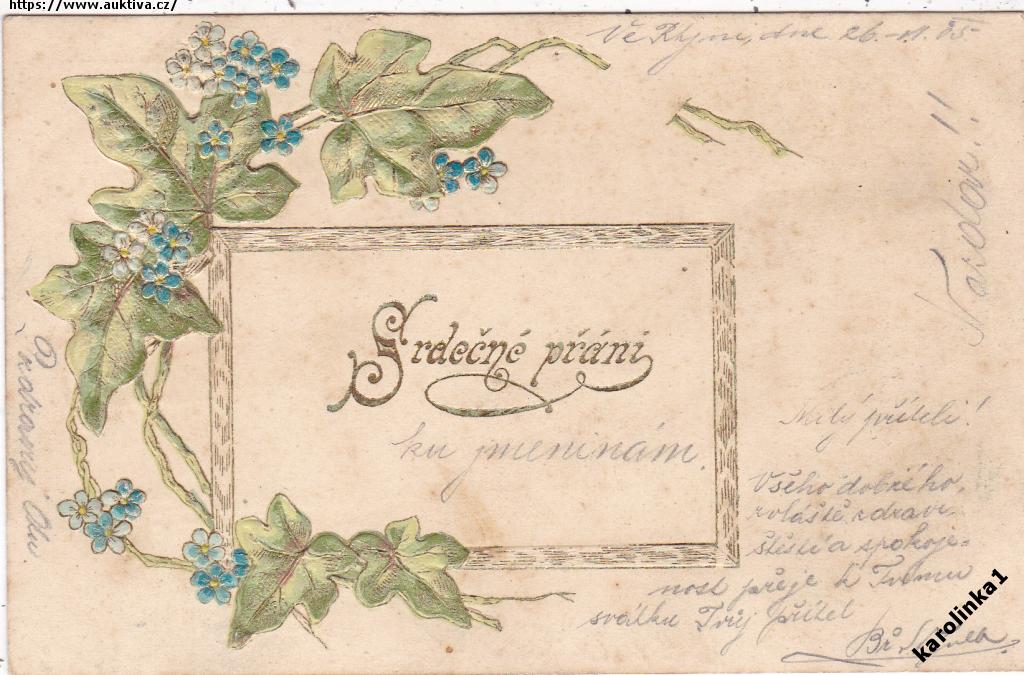 https://www.auktiva.cz/
dne 26. 11. 05
Nazdar!!
Srdečné přání
ku jmeninám.
Milý příteli!
Všeho dobrého,
zvláště zdraví
štěstí a spokoje-
nost přeje k Tvému
svátku Tvůj přítel
karolinka1